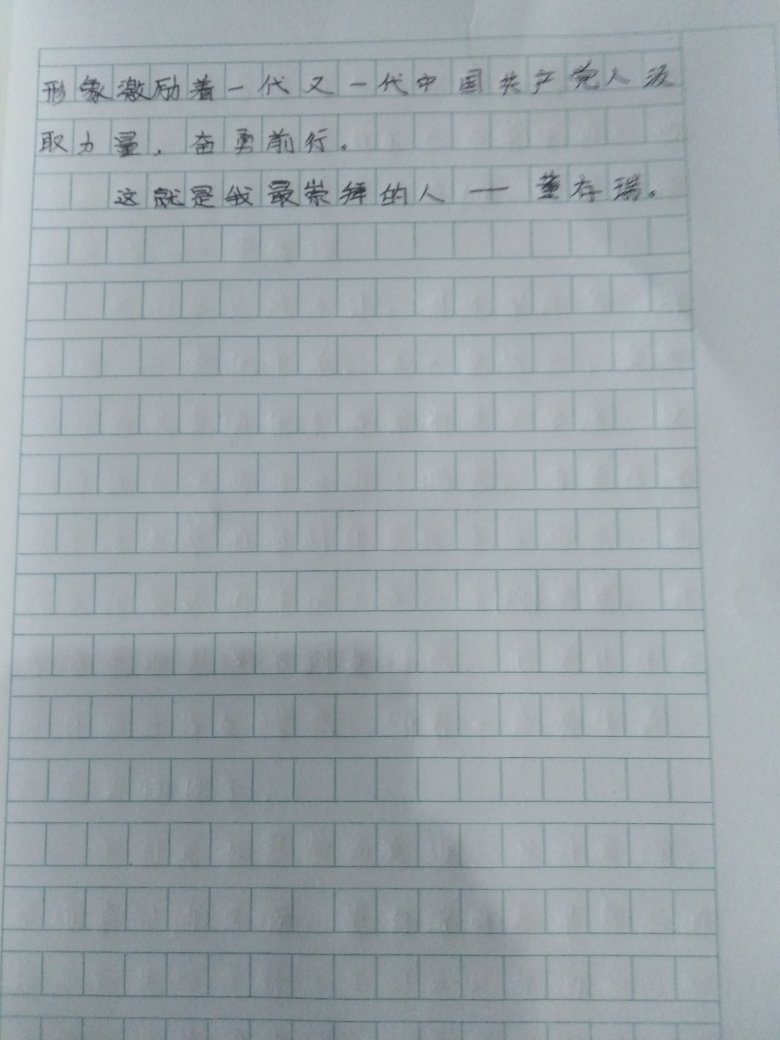 形象激励着一代又一代中国共产党人汲
取力量，奋勇前行。
这就是我最崇拜的人——董存瑞。